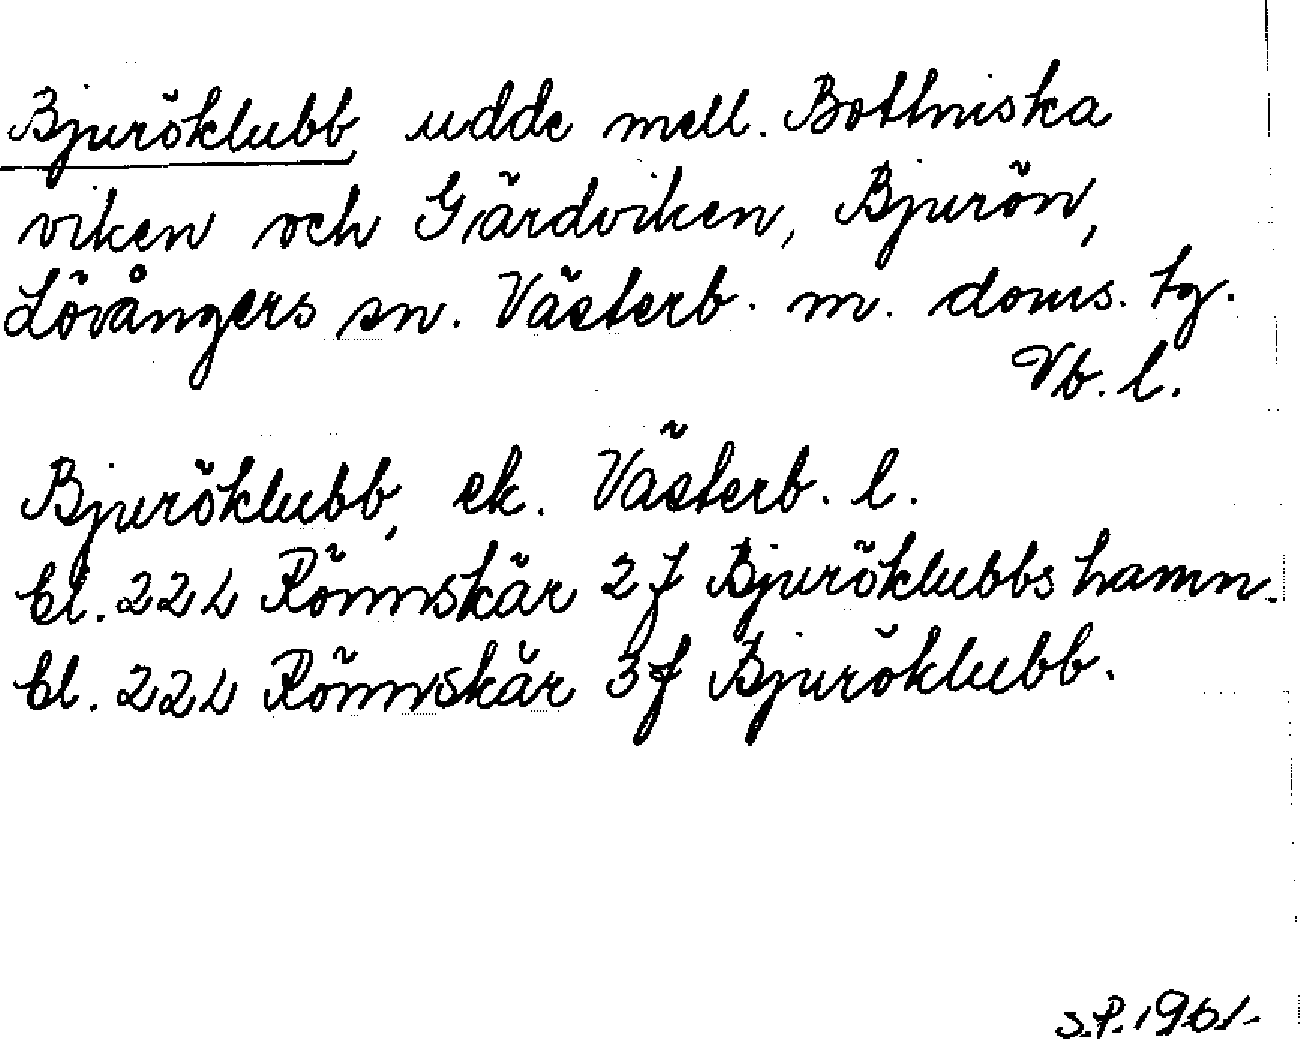 Bjuröklubb, udde mell. Bottniska
viken och Gärdviken, Bjurön,
Lövångers sn. Västerb. m. doms. tg.
Vb. l.
Bjuröklubb, ek. Västerb. l.
bl. 22 L Rönnskär 2f Bjuröklubbs hamn.
bl. 22 L Rönnskär 3f Bjuröklubb.
S.P. 1961.